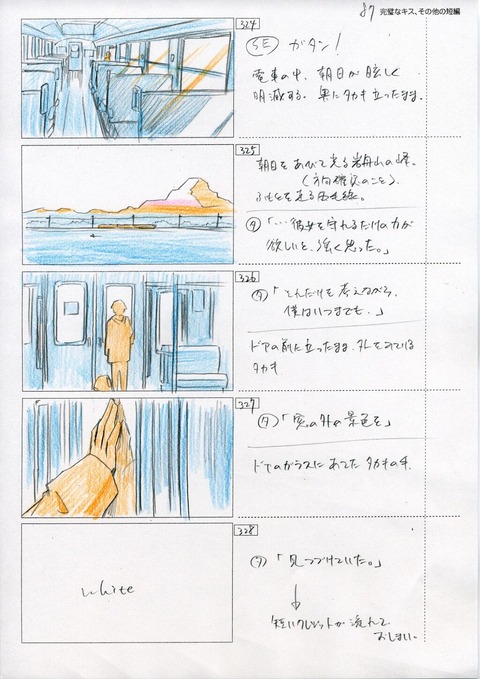 87 完璧なキス、その他の短編
324
SE ガタン!
電車の中、朝日が眩しく
明滅する。奥にタカキ立ったまま。
325
朝日をあびて光る岩舟山の峰。
(方向確認のこと)、
ふもとを走る両毛線。
タ「…彼女を守れるだけの力が
欲しいと、強く思った。」
326
タ「それだけを考えながら、
僕はいつまでも、」
ドアの前に立ったまま、外をみている
タカキ
327
タ「窓の外の景色を」
ドアのガラスにあてたタカキの手。
328
white
タ「見つづけていた。」
短いクレジットが流れて
おしまい。